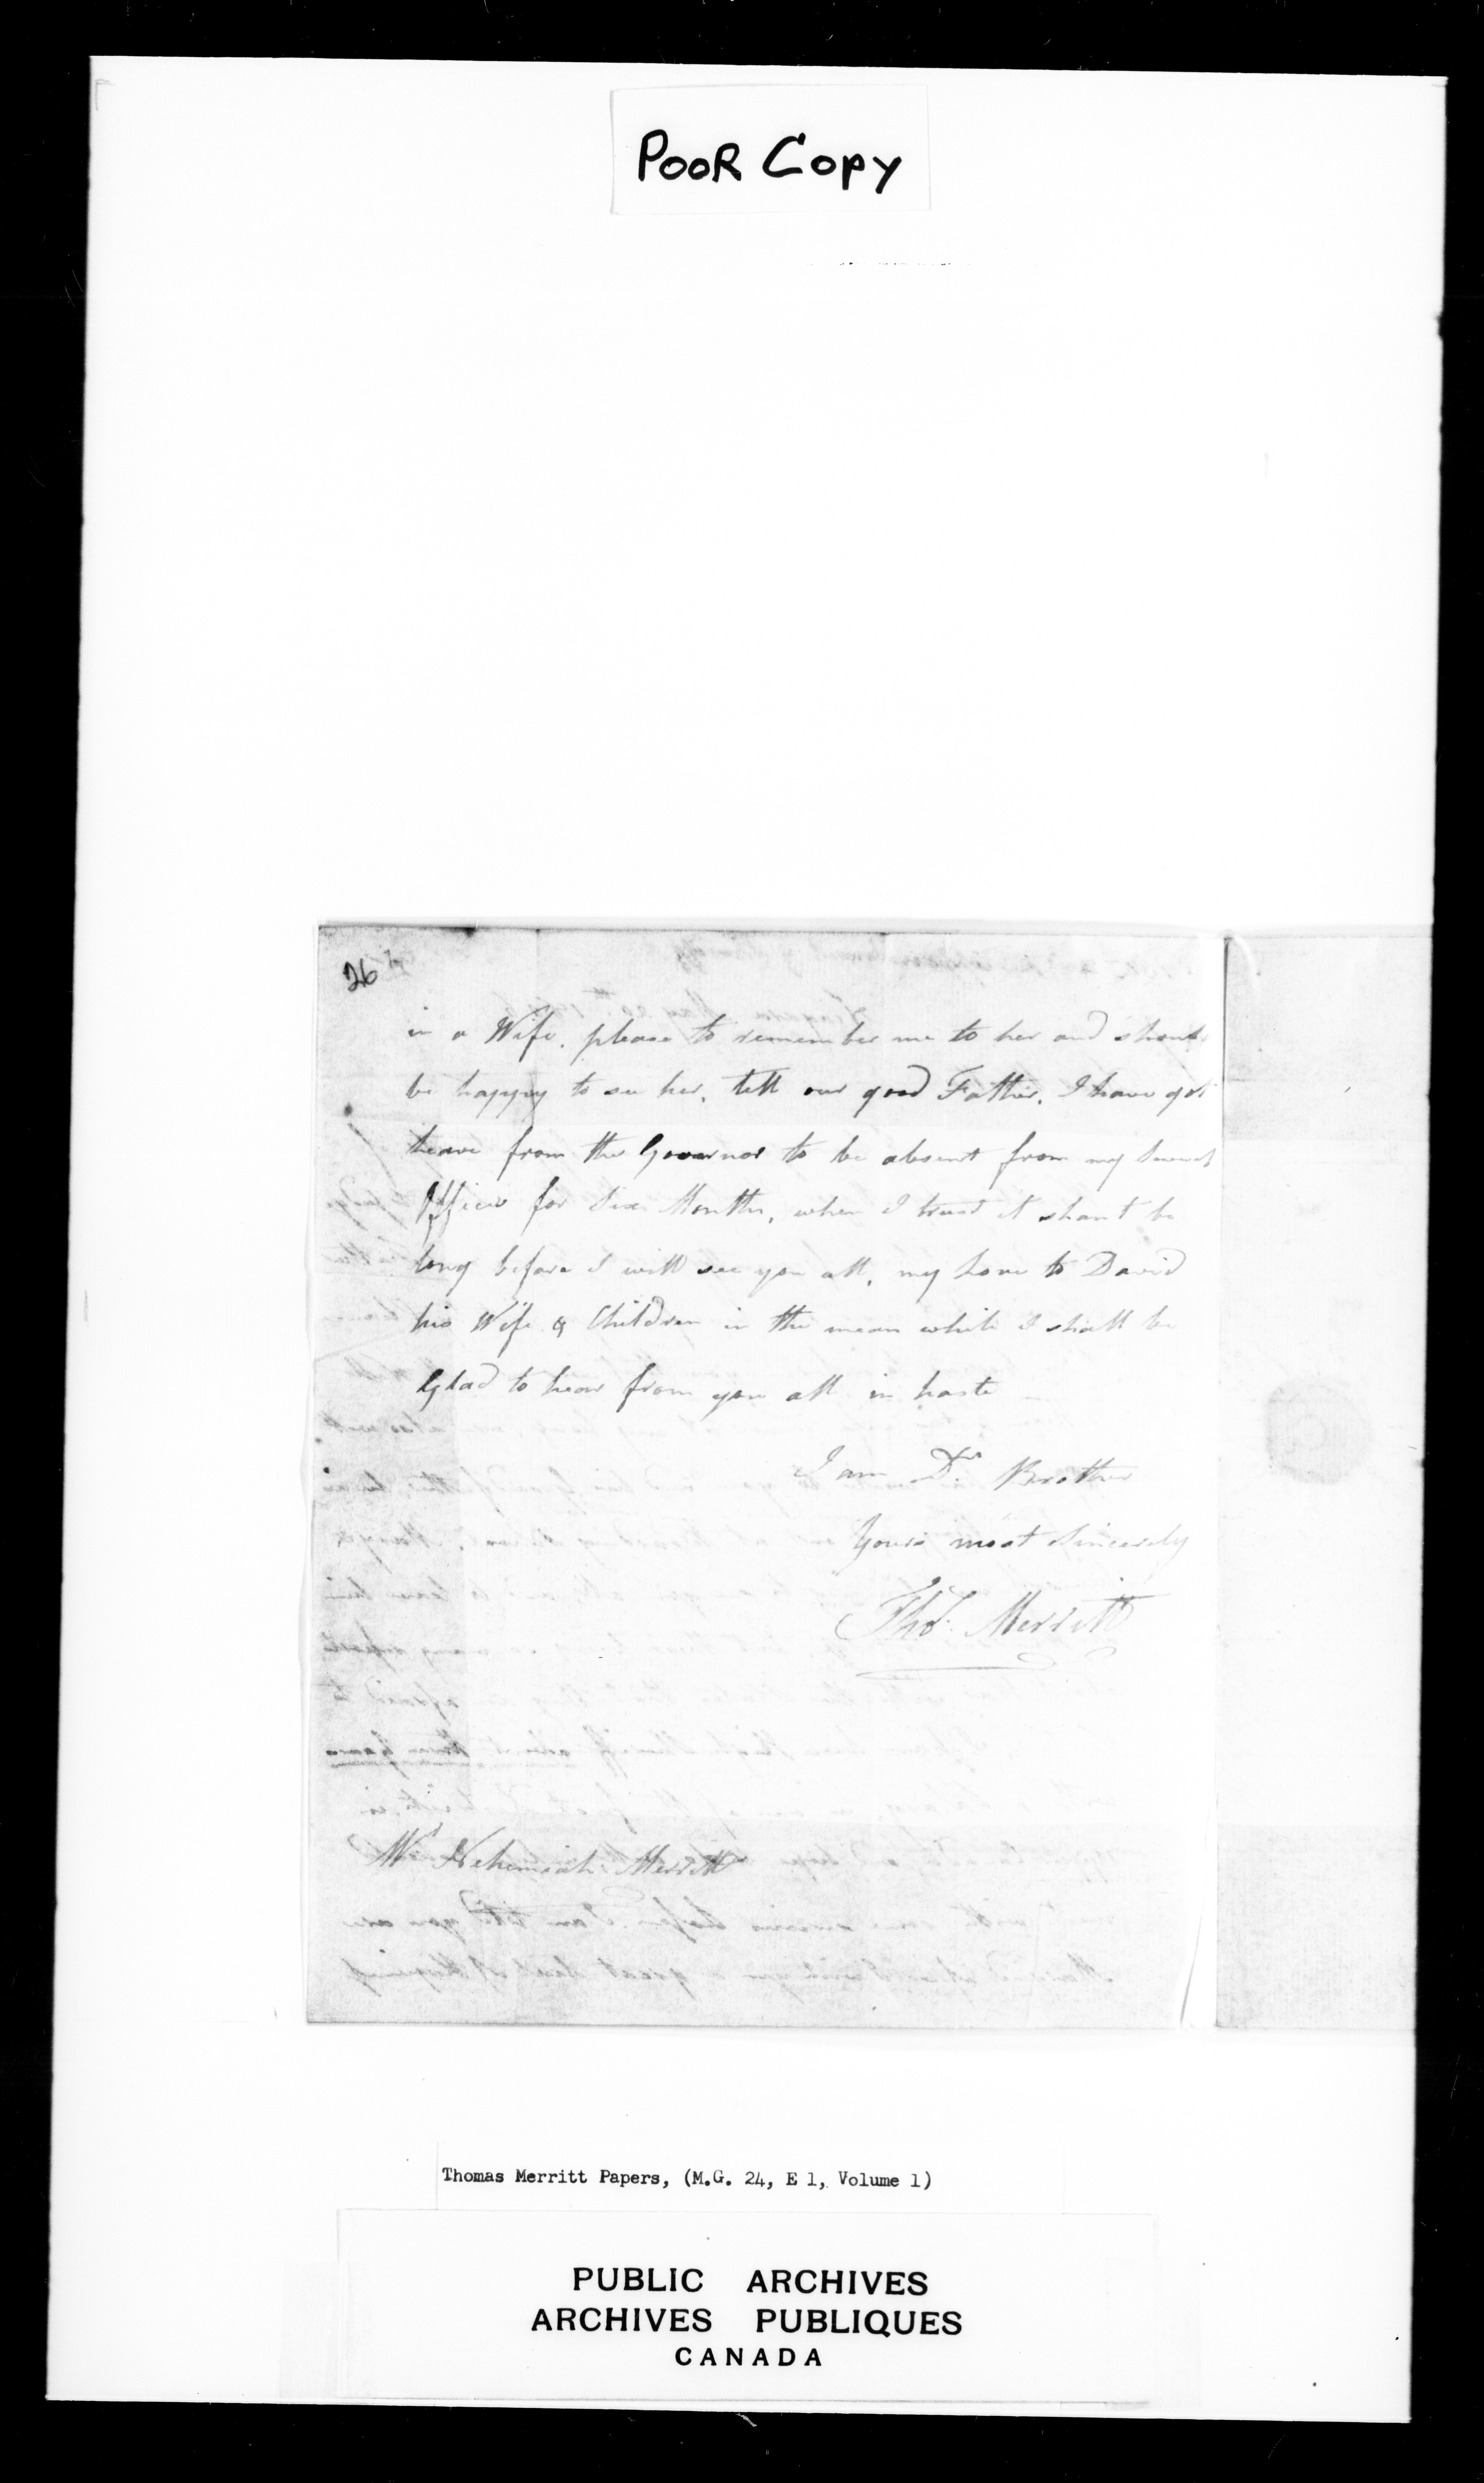 POOR COPY
26
in a Wife. please to remember me to her and
be happy to see her, tell our good Father, I have got
leave from the Governor to be absent from my
Offices for Six Months, when I trust it shant be
long before I will see you all, my Love to David
his Wife & Children in the mean while I shall be
Glad to hear from you all in haste
I am Dr. Brother
Yours most Sincerely
Thos. Merritt
Mr Nehemiah Merritt
Thomas Merritt Papers, (M.G. 24, E 1, Volume 1)
PUBLIC ARCHIVES
ARCHIVES PUBLIQUES
CANADA